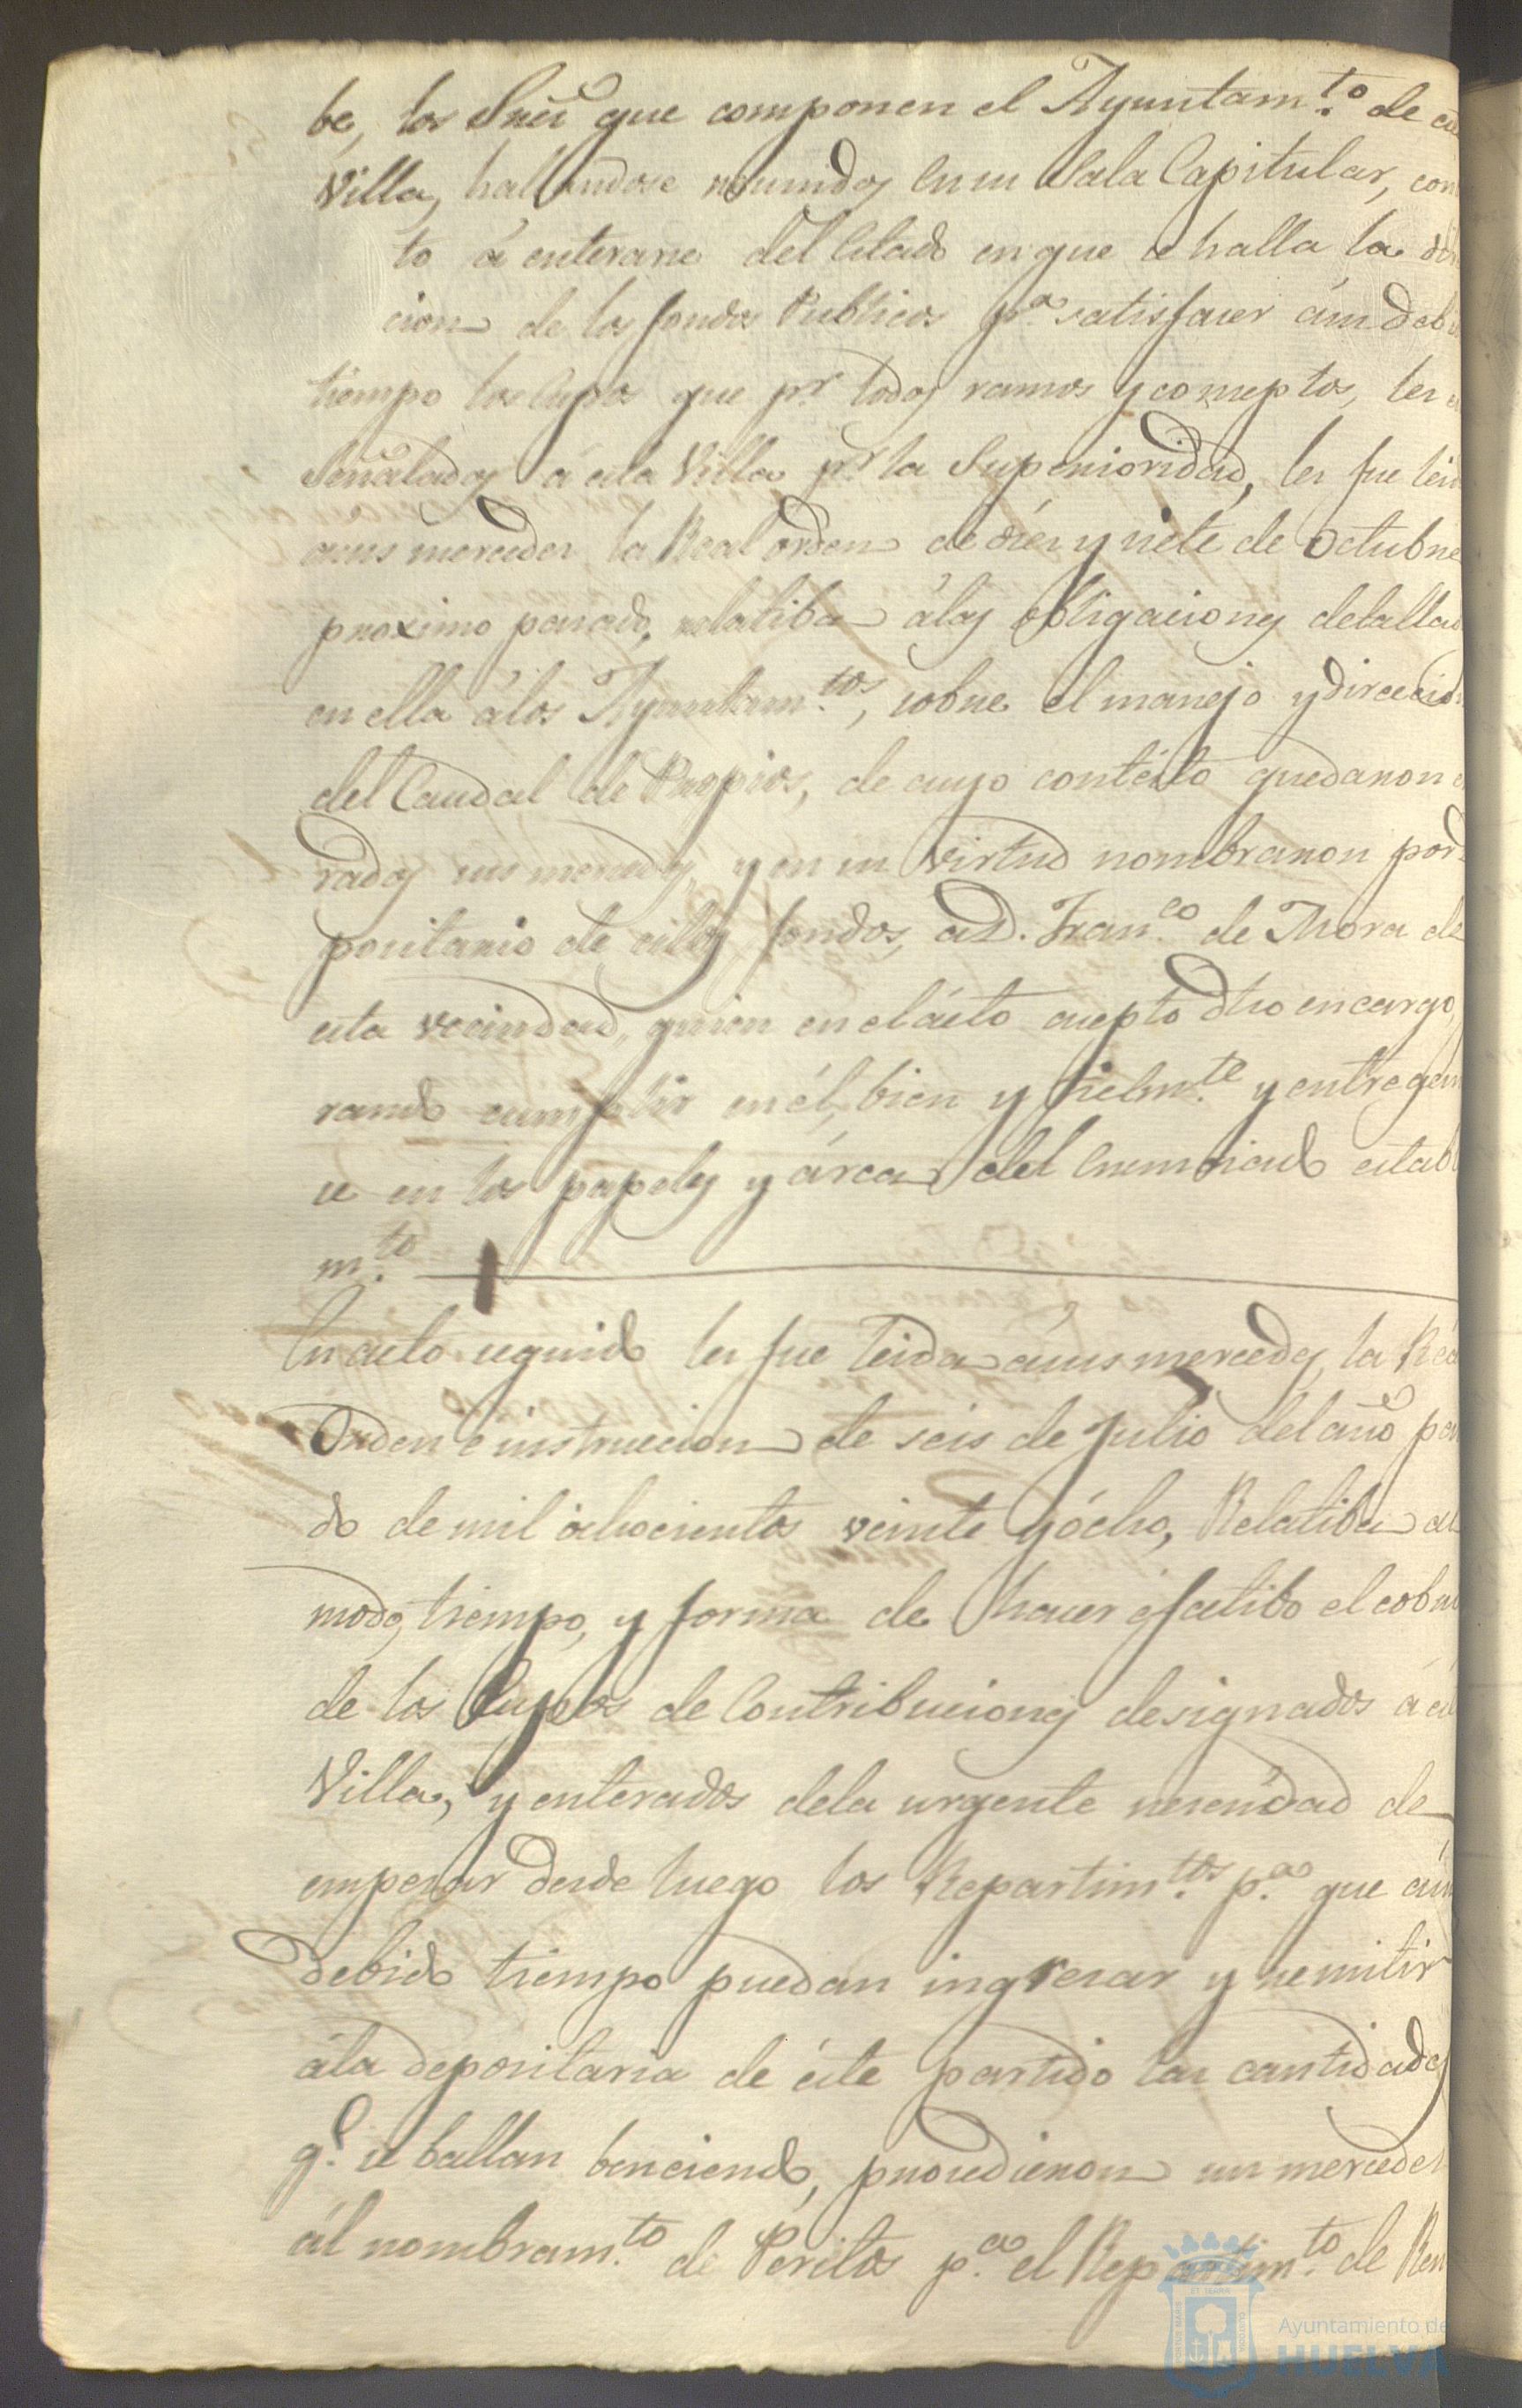 be, los Sres que componen el Ayuntam.to de
Villa, hallandose reunidos en su Sala Capitular, con
to á enterarse del estado en que se halla la
cion de los fondos Publicos p.a satisfacer á su deb
tiempo los cupos que p.r todos ramos y conceptos, les
señalados á esta Villa p.r la Superioridad, les fue leid
a sus mercedes la Real orden de diez y siete de Octubre
proximo pasado, relatiba á las obligaciones detallad
en ella á los Ayuntam.tos, sobre el manejo y direccion
del Caudal de Propios, de cuyo contesto quedaron
rados sus mercedes, y en su virtud nombraron por
positario de estos fondos, a D. Fran.co de Mora de
esta vecindad, quien en el ácto acepto dho encargo,
rando cumplir en él, bien y fielm.te y entregan
se en los papeles y árca del enunciado establ
m.to
En acto seguido les fue leida á sus mercedes, la Rea
Orden é instruccion de seis de Julio del año pas
do de mil ochocientos veinte y ócho, Relatiba al
modo, tiempo, y forma de hacer éfectibo el cobro
de los Cupos de Contribuciones designados á
Villa, y enterados dela urgente necesidad de
empezar desde luego los Repartim.tos p.a que á su
debido tiempo puedan ingresar y remitir
ála depositaria de éste partido las cantidades
q.e se hallan benciendo, procedieron sus mercedes
ál nombram.to de Peritos p.a el Repartim.to de Ren
Ayuntamiento de
HUELVA